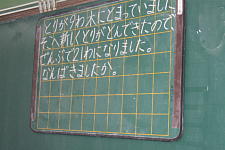 とりが9わ木にとまっていました。
そこへ新しくとりがとんできたので
ぜんぶで21わになりました。
なんばきましたか。